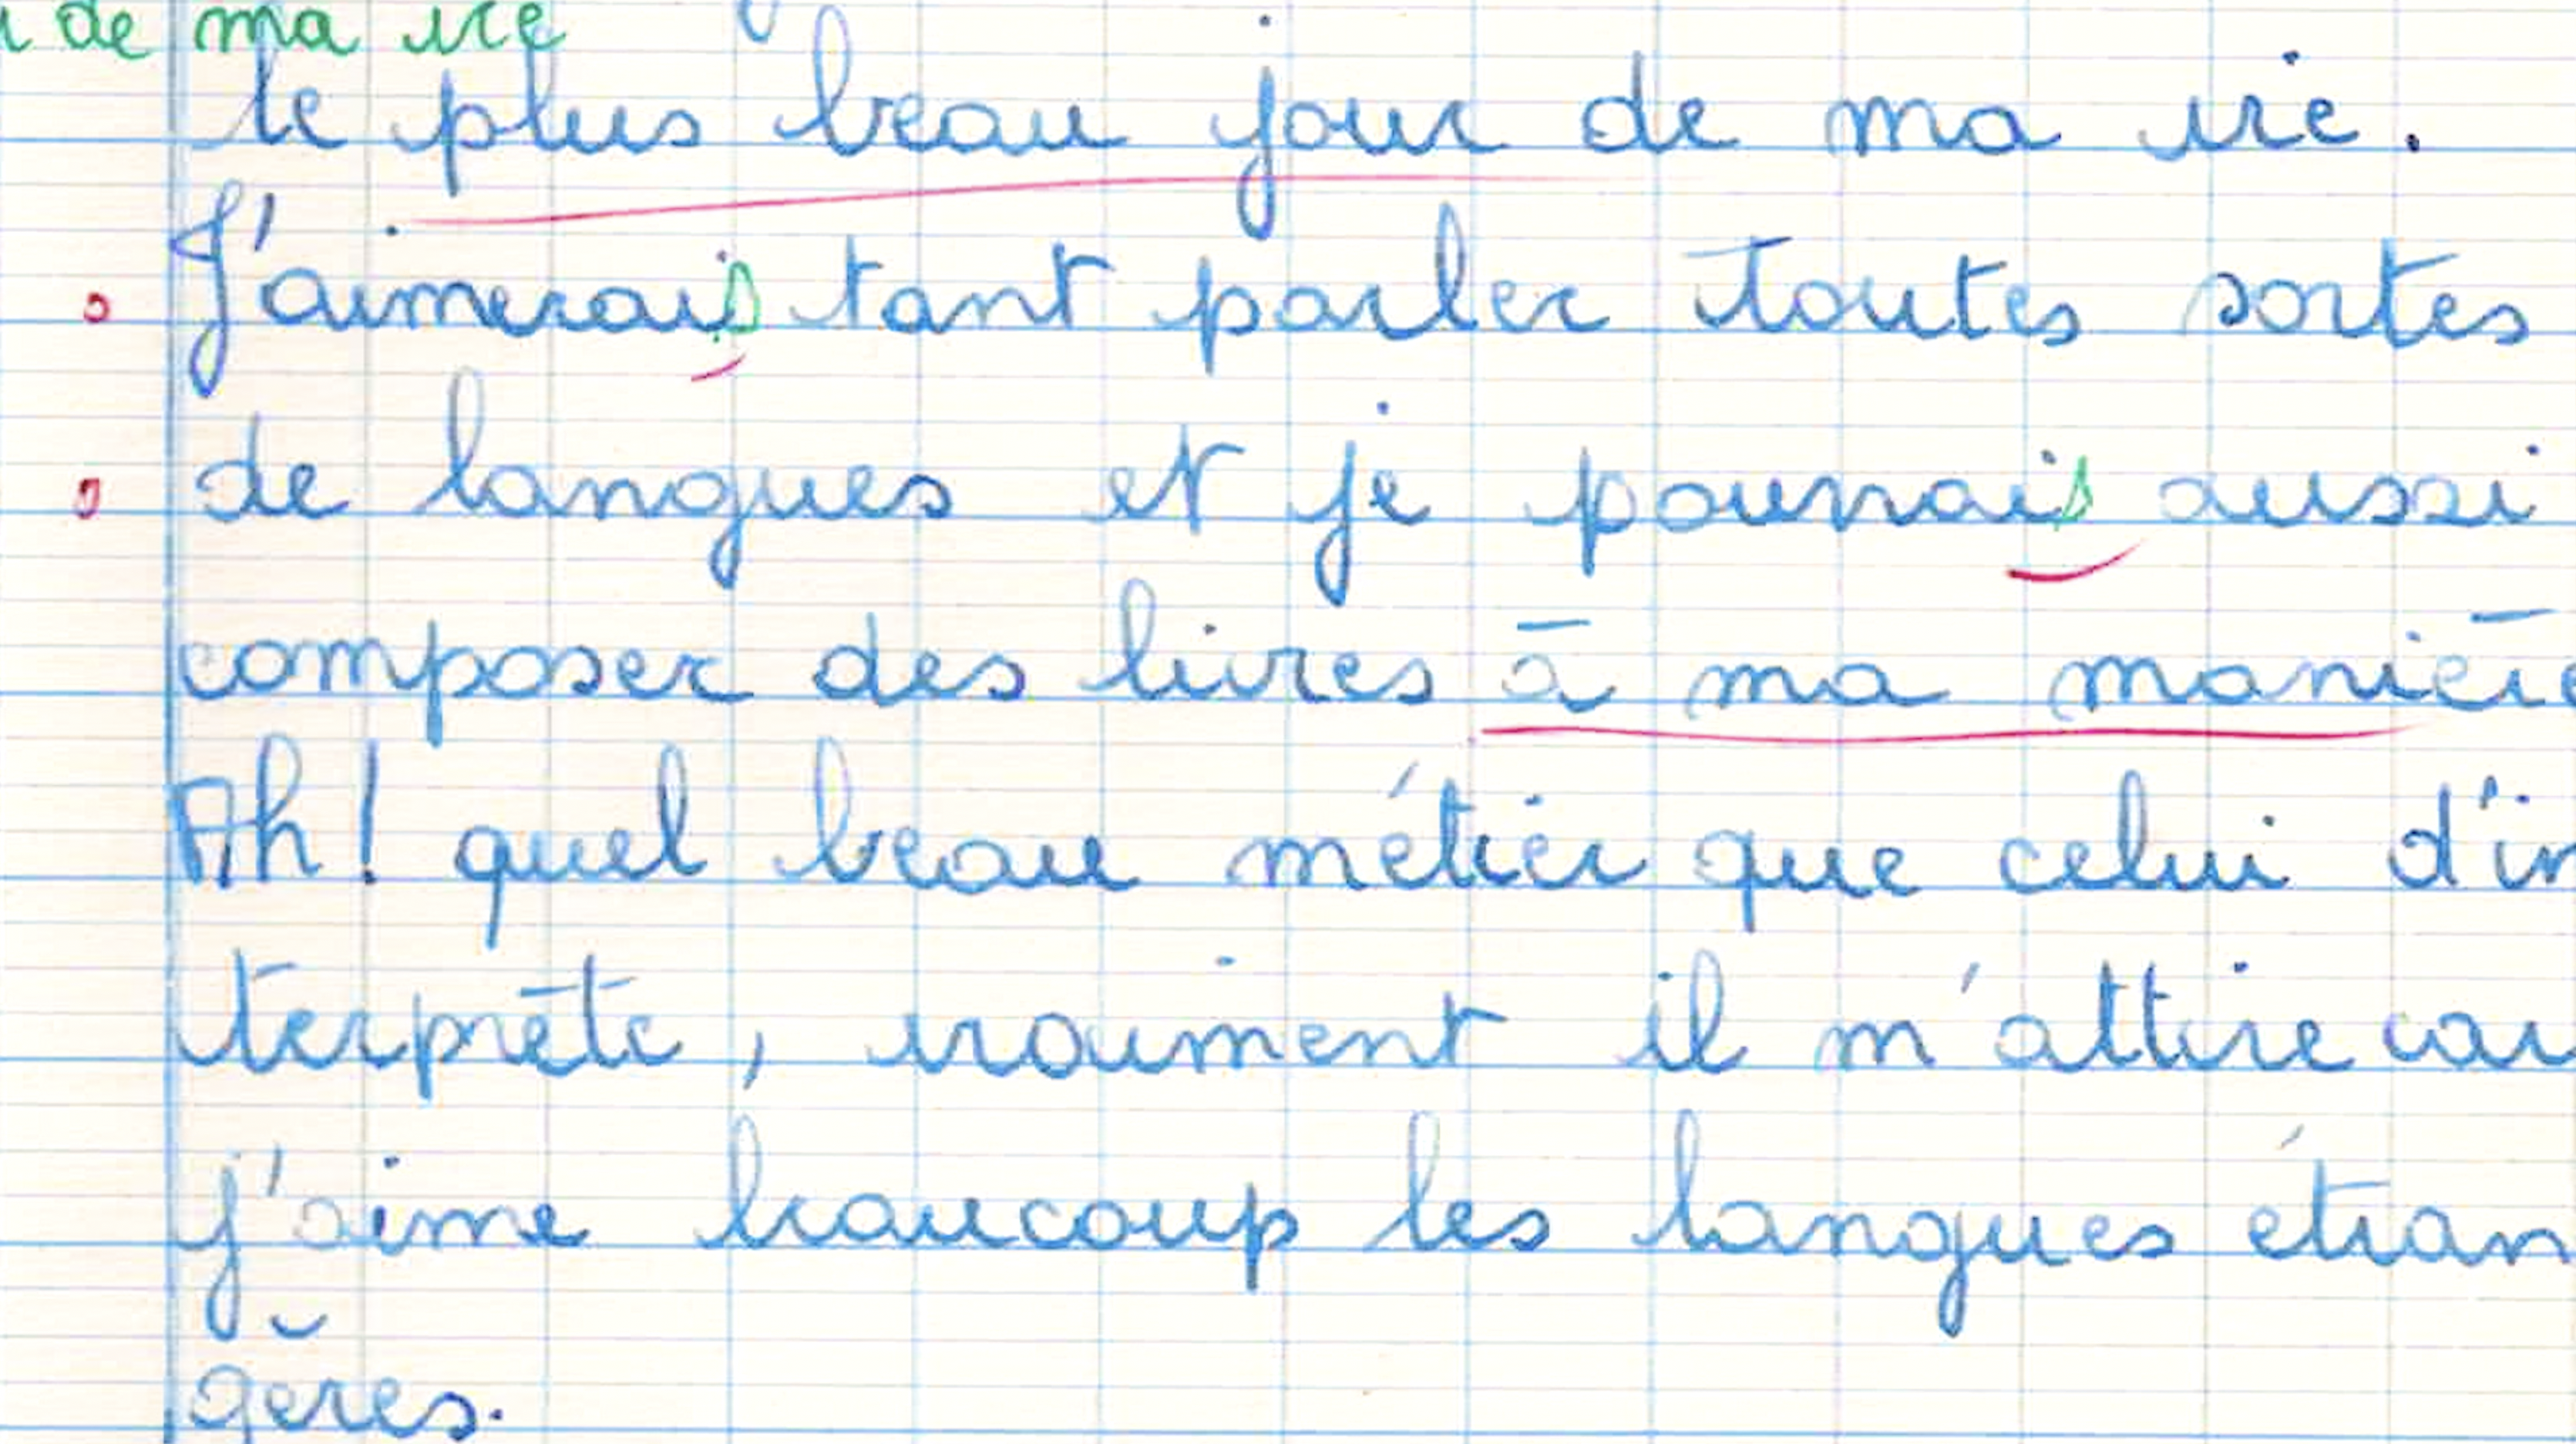 de ma vie
le plus beau jour de ma vie.
J'aimerais tant parler toutes sortes
de langues et je pourrais aussi
composer des livres à ma manière
Ah! quel beau métier que celui d'in
terprète, vraiment il m'attire car
j'aime beaucoup les langues étran
gères.